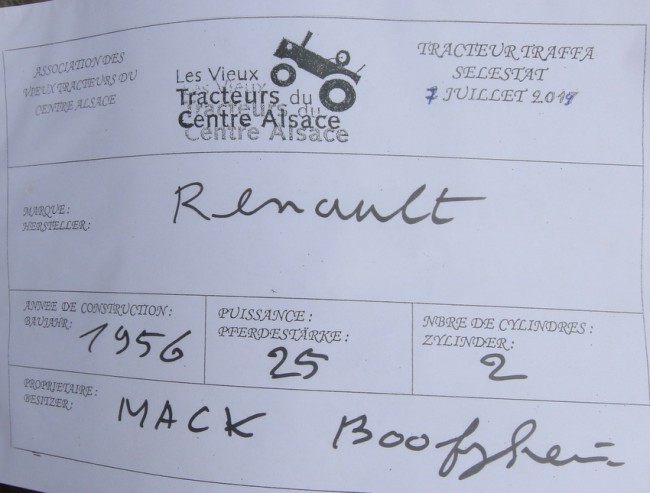 ASSOCIATION DES
VIEUX TRACTEURS DU
CENTRE ALSACE
Les Vieux
Tracteurs du
Centre Alsace
TRACTEUR TRAFFA
SELESTAT
7 JUILLET 2019
MARQUE :
HERSTELLER:
Renault
ANNEE DE CONSTRUCTION :
BAUJAHR:
1956
PUISSANCE :
PFERDESTÄRKE :
25
NBRE DE CYLINDRES :
ZYLINDER:
2
PROPRIETAIRE :
BESITZER:
MACK Boofzheim